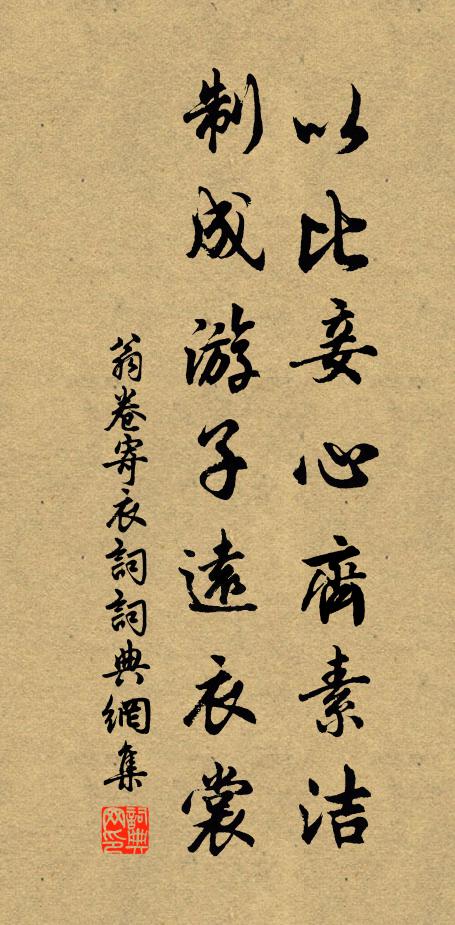 以比妾心齊素洁
制成游子遠衣裳
翁卷寄衣詞詞典網集
詞典网印